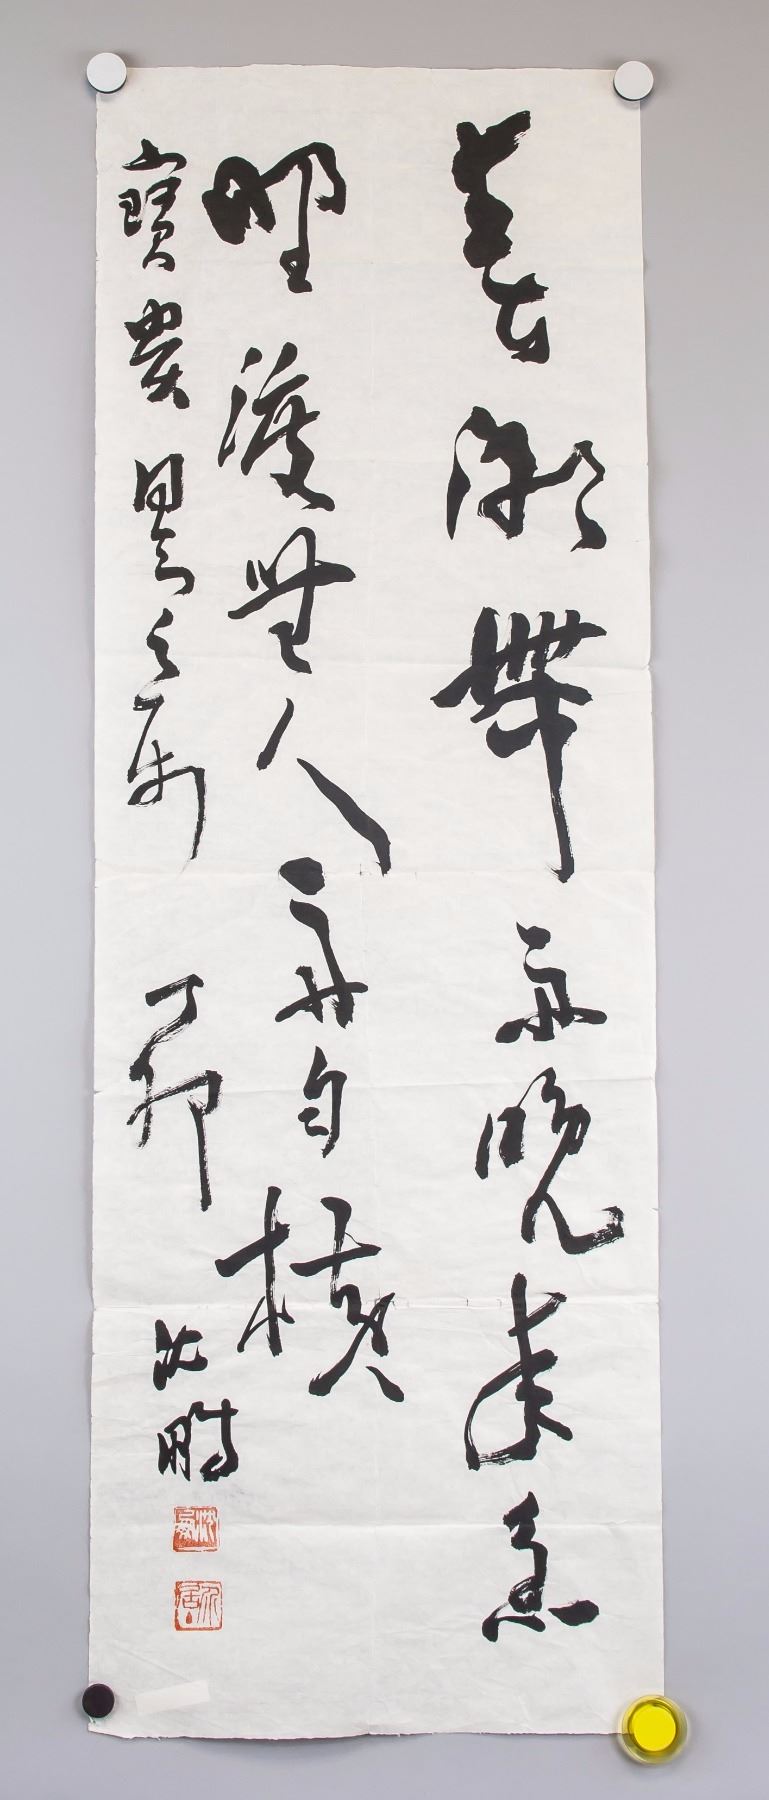 春潮帶雨晚来急
野渡無人舟自橫
寶貴同志之屬 丁卯 沈鵬
沈鵬